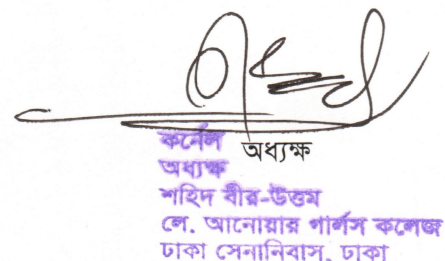 কর্নেল অধ্যক্ষ
অধ্যক্ষ
শহিদ বীর-উত্তম
লে. আনোয়ার গার্লস কলেজ
ঢাকা সেনানিবাস, ঢাকা